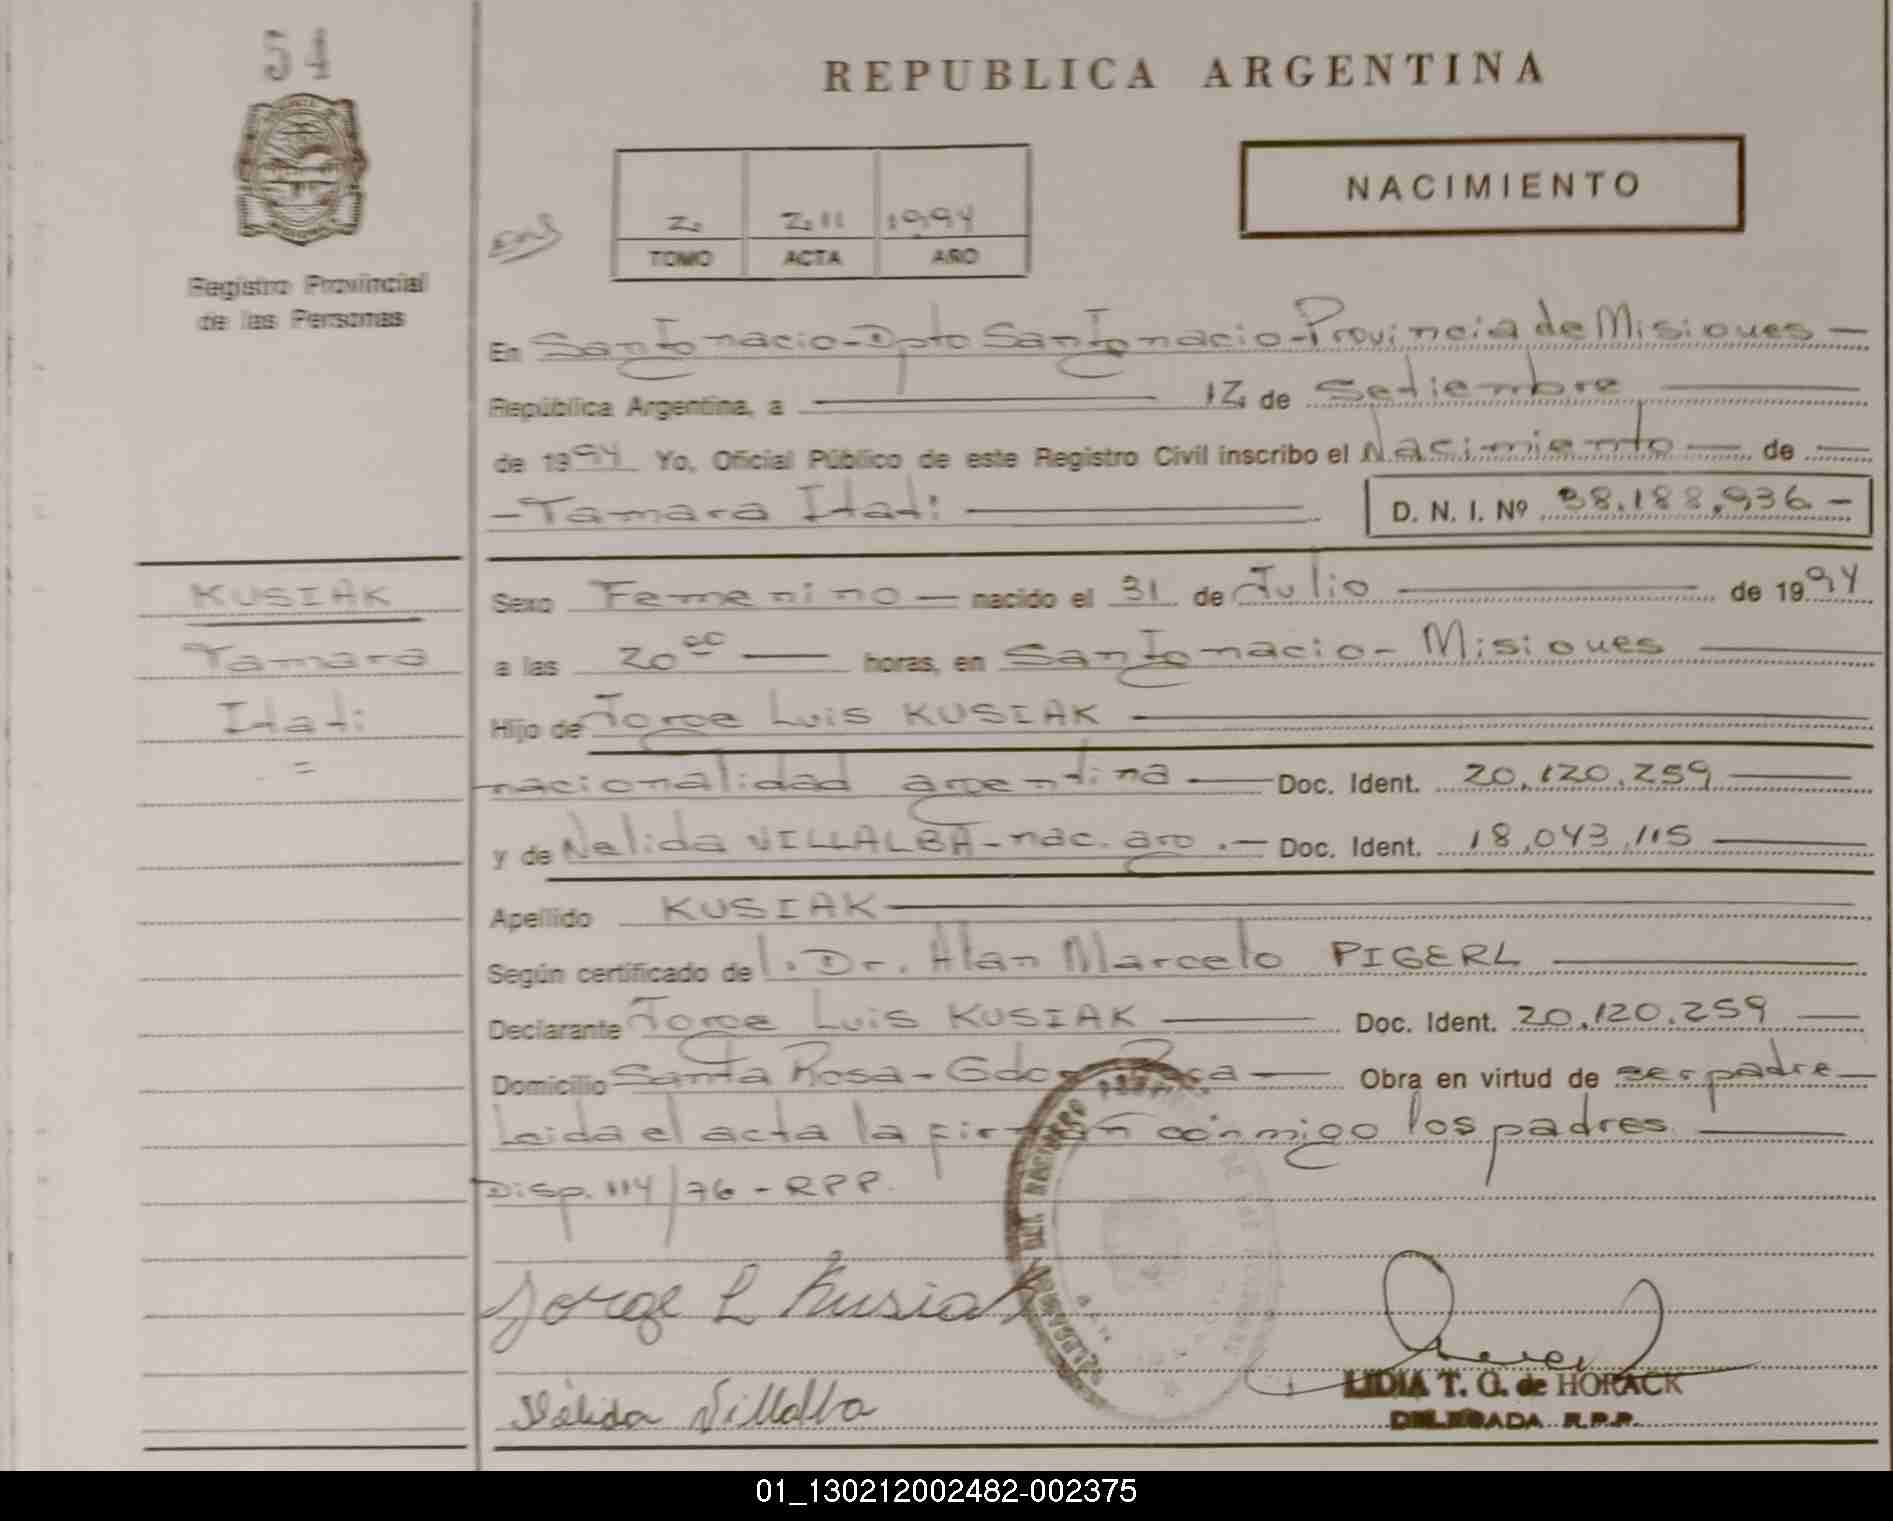 54
REPUBLICA ARGENTINA
NACIMIENTO
2. 211 1994
TOMO ACTA AÑO
Registro Provincial
de las Personas
En San Ignacio - Dpto San Ignacio - Provincia de Misiones —
República Argentina, a — 12 de Setiembre —
de 1994 Yo, Oficial Público de este Registro Civil inscribo el Nacimiento — de —
- Tamara Itati —
D. N. I. Nº 38.188.936 -
KUSIAK
Tamara
Itati
=
Sexo Femenino — nacido el 31 de Julio — de 1994
a las 20 00 — horas, en San Ignacio - Misiones —
Hijo de Jorge Luis KUSIAK —
nacionalidad argentina — Doc. Ident. 20.120.259 —
y de Nelida VILLALBA - nac. arg. — Doc. Ident. 18.043.115 —
Apellido KUSIAK —
Según certificado de l. Dr. Alan Marcelo PIGERL —
Declarante Jorge Luis KUSIAK — Doc. Ident. 20.120.259 —
Domicilio Santa Rosa - Gdor Roca — Obra en virtud de ser padre —
Leida el acta la firman conmigo los padres —
Disp. 114/76 - RPP.
Jorge L Kusiak
Nélida Villalba
LIDIA T. G. de HORACK
DELEGADA R.P.P.
01_130212002482-002375